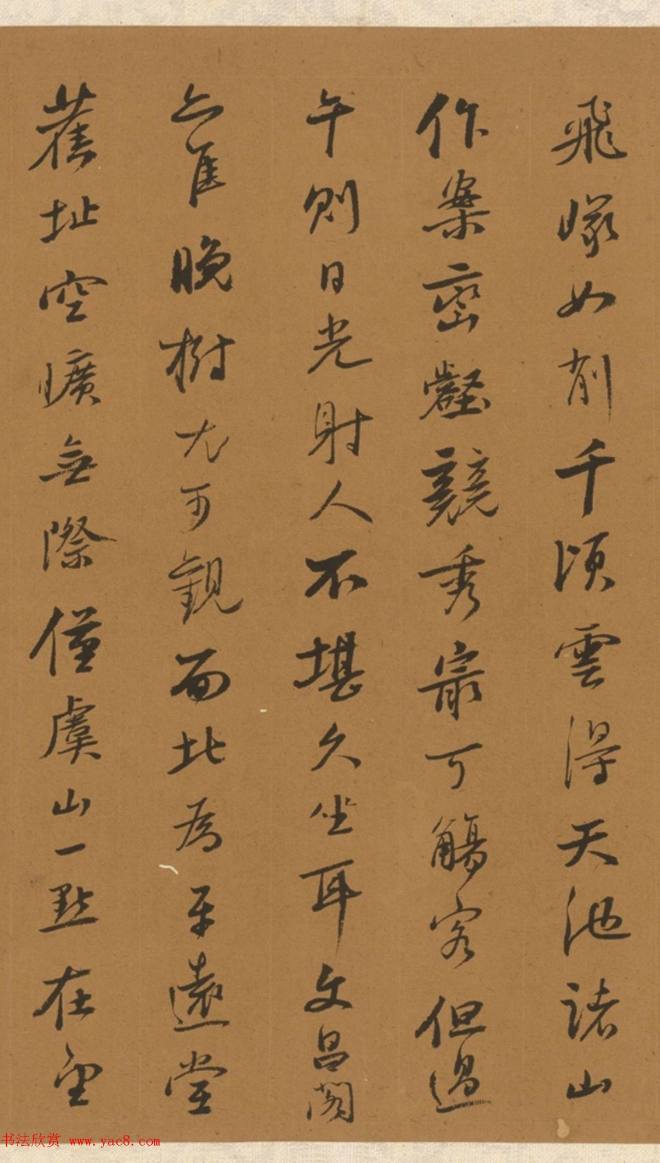 飛巖如削千頃雲得天池諸山
作案巒壑競秀最可觴客但過
午則日光射人不堪久坐耳文昌閣
亦佳晚樹尤可觀面北為平遠堂
舊址空曠無際僅虞山一點在望
书法欣赏 www.yac8.com